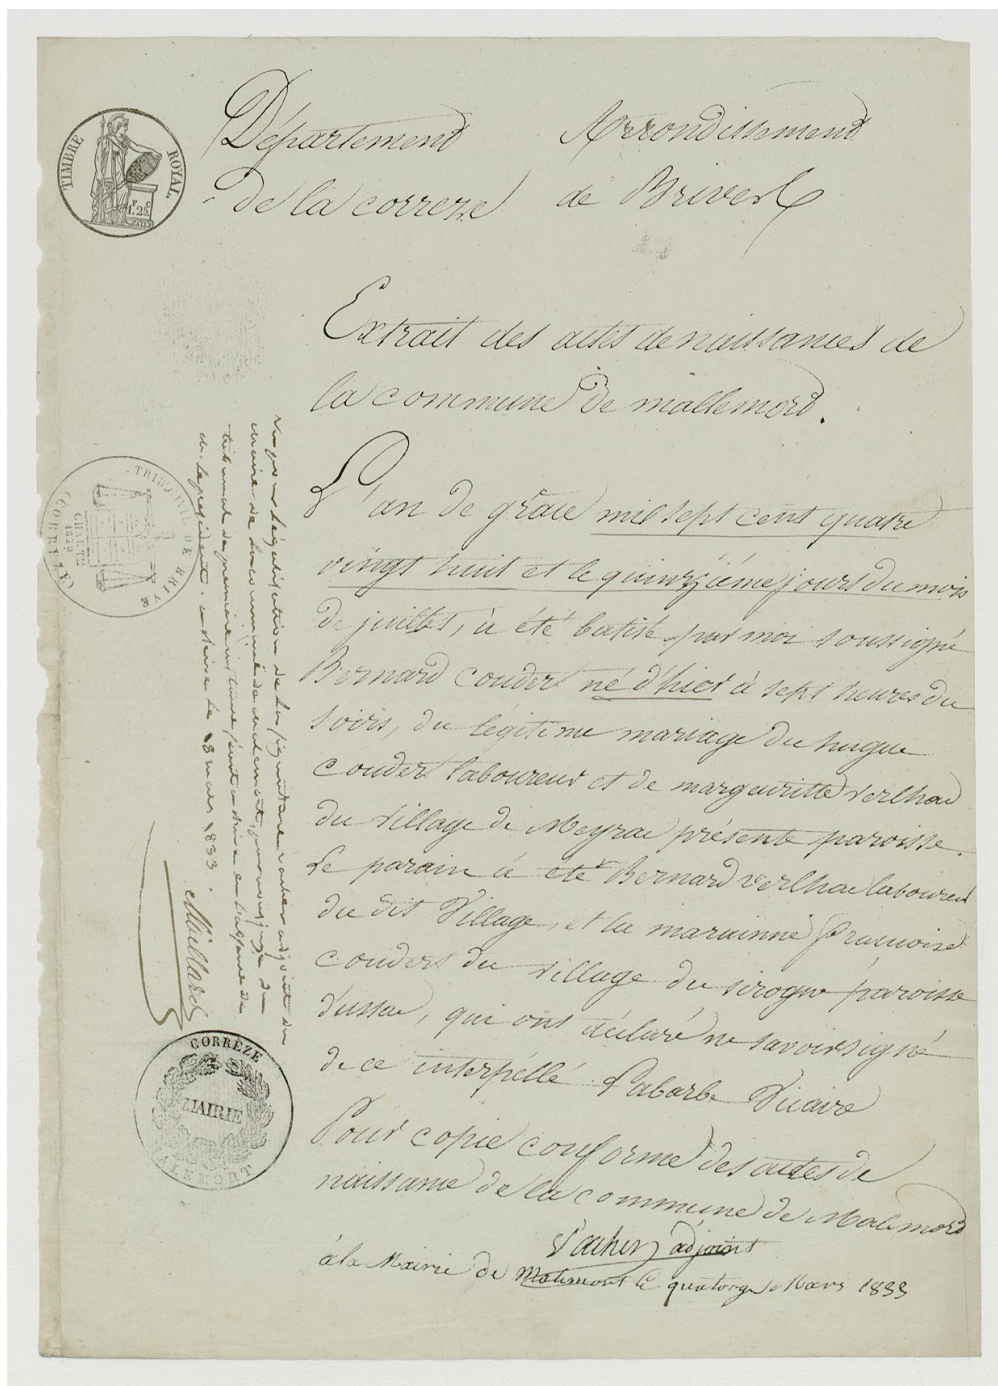 TIMBRE ROYAL
F. C.
1.25
Département Arrondissement
de la correze de Brives
Extrait des actes de naissances de
la commune de mallemord.
L'an de grace mil sept cent quatre
vingt huit et le quinzième jours du mois
de juillet, à été batisé par moi soussigné
Bernard couder né d'hier à sept heures du
soirs, du legitime mariage du hugue
couder laboureur et de margueritte verlhac
du village de Meyrac présente paroisse.
Le parain à été Bernard verlhac laboureur
du dit Village, et la marainne françoise
couders du village du sirogne paroisse
d'ussac, qui ont déclaré ne savoir signé
de ce interpéllé. Labarbe Vicaire
Pour copie conforme des actes de
naissance de la commune de Malemord
Vacher adjoint
à la Mairie de Malemort le quatorze Mars 1833
Vu pour légalisation de la signature vacher adjoint du
maire de la commune de malemort, par nous juge du
tribunal de première instance séant à brive en l'absence de
M. le président. à brive le 18 mars 1833.
Maillard
TRIB. CIVIL DE BRIVE
(CORRÈZE)
CHARTE
1830
CORRÈZE
MAIRIE
MALEMORT